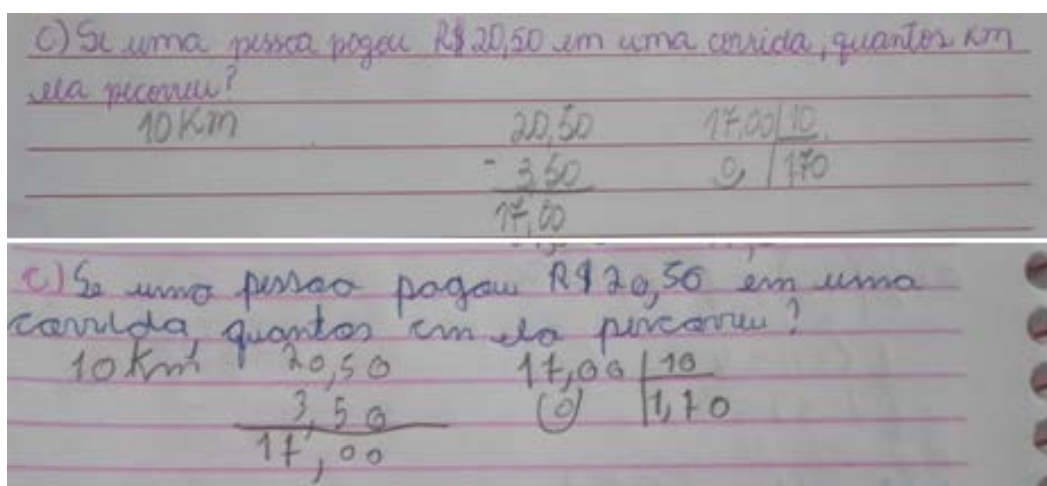 C) Se uma pessoa pogou R$ 20,50 em uma corrida, quantos Km
ela pecorreu?
10 Km 20,50 17,00 | 10
- 3,50 0 | 170
17,00
c) Se uma pessoa pagou R$ 20,50 em uma
corrida, quantos km ela percorreu?
10 Km 20,50 17,00 | 10
3,50 (0) | 1,70
17,00